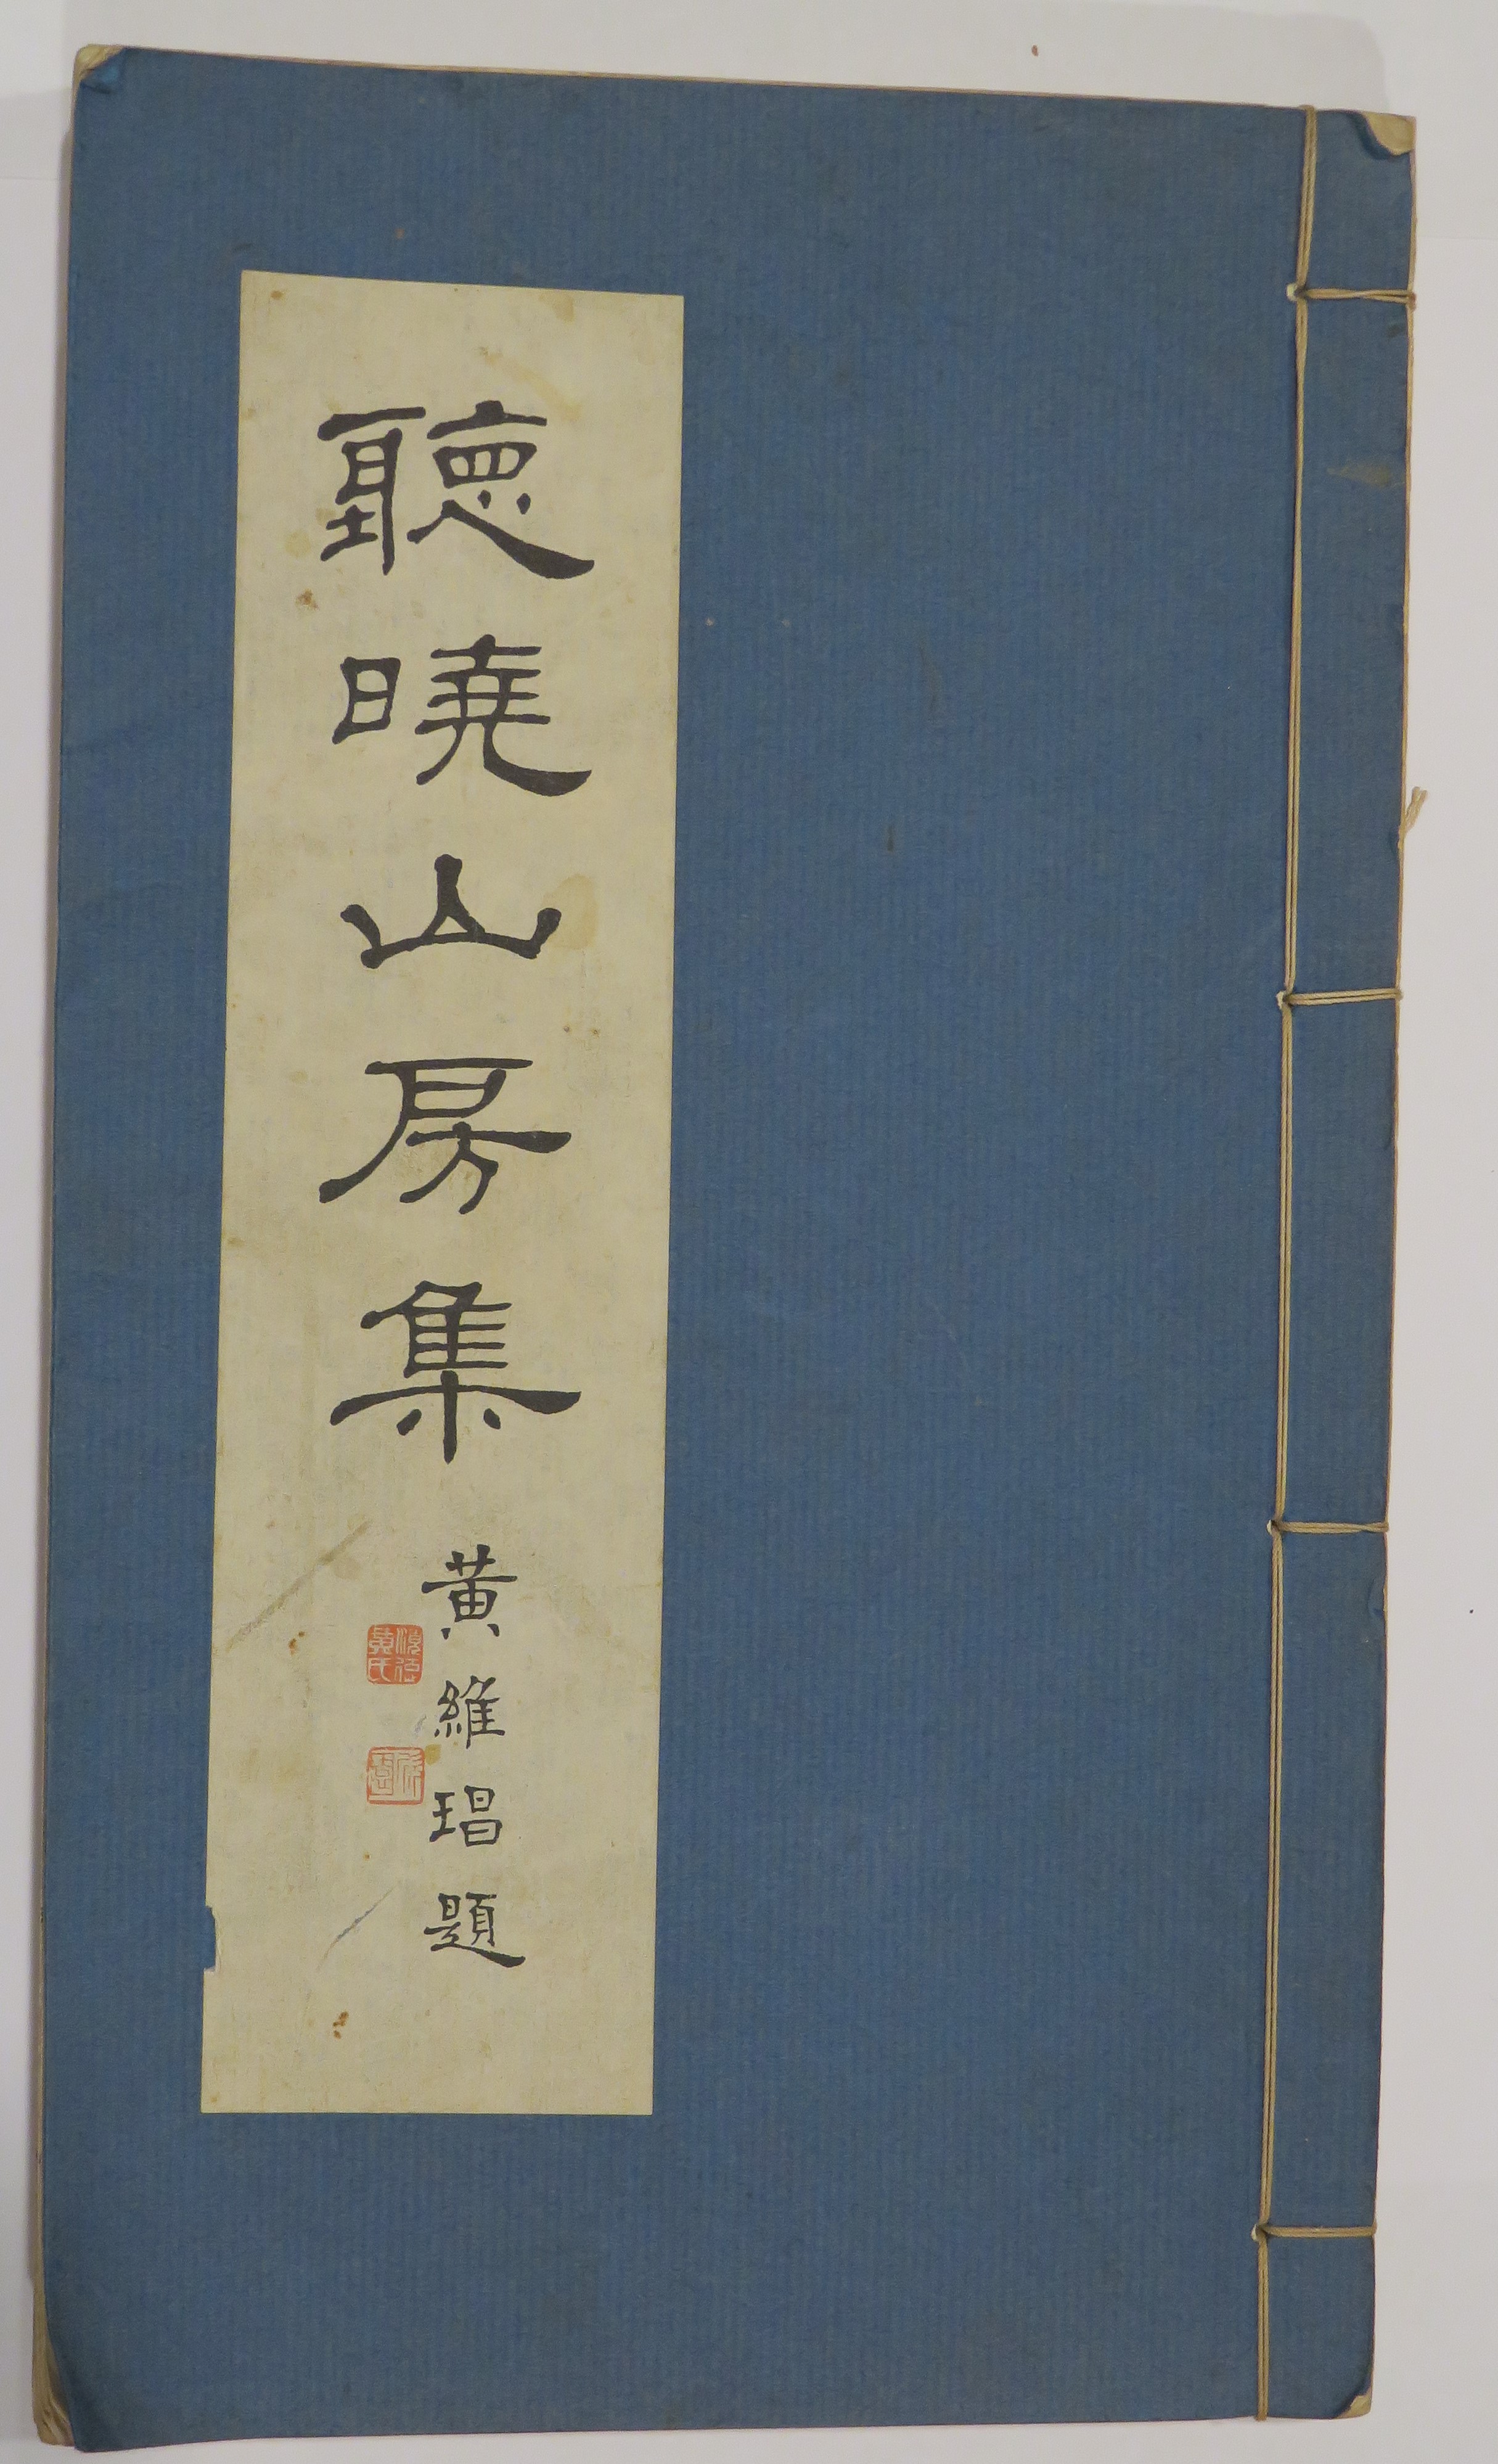 聽曉山房集
黃維琩題